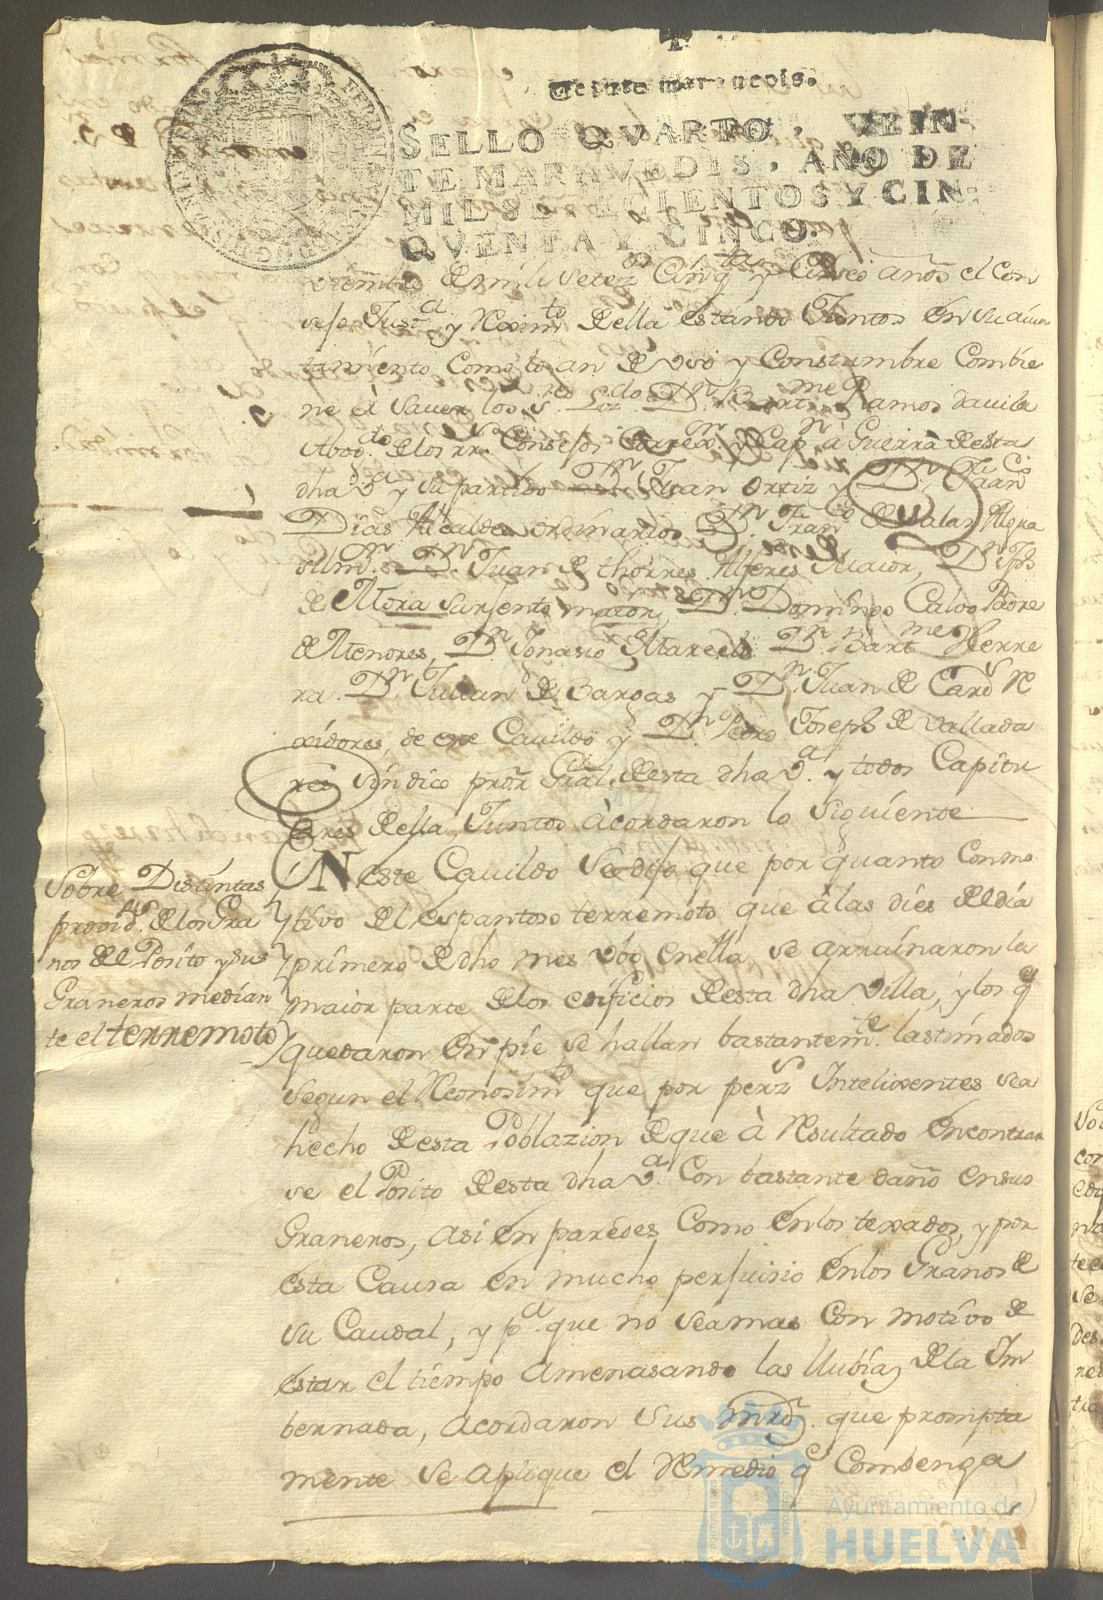 Veinte maravedis.
SELLO QVARTO, VEIN-
TE MARAVEDIS, AÑO DE
MIL SETECIENTOS Y CIN-
QVENTA Y CINCO.
viembre de mil setez.os Cinq.ta y Cinco años el Con
sejo Just.a y Reximto. de ella estando Juntos en su aiun
tamiento como lo an de uso y Constumbre Combie
ne à saver los s.res Lz.do D.n Bart.me Ramos davila
Abog.do de los rr.s Consejos Correx.or y Cap.n à Guerra de esta
dha V.a y su partido D.n Juan Ortiz y D.n Fran.co
Dias Alcaldes ordinarios D.n Fran.co de Salas Algua
sil m.r D.n Juan de thorres Alferes Maior, D.n Jph
de Mora Surjento maior, D.n Domingo Calvo Padre
de Menores, D.n Ignasio Marcelo D.n Bart.me Herre
ra D.n Julian de Bargas y D.n Juan de Card.s Re
xidores de este Cavildo y D.n Pedro Joseph de Vallada
res Síndico pror. Gral. de esta dha V.a y todos Capitu
lares de ella Juntos acordaron lo siguiente
Sobre Distintas
provid.as de los Gra
nos del Posito y sus
Graneros median
te el terremoto
EN este Cavildo se dijo que por quanto con mo
tivo de el espantoso terremoto que à las dies del día
primero de dho mes ubo en ella se arruinaron la
maior parte de los edificios de esta dha Villa, y los q.e
quedaron en pie se hallan bastantem.te lastimados
segun el Reconosim.to que por pers.s Intelixentes sea
hecho de esta Poblazion de que à Resultado encontrar
se el Posito de esta dha V.a Con bastante daño en sus
Graneros, asi en paredes Como en los texados, y por
esta Causa en mucho perjuisio en los Granos de
su Caudal, y p.a que no sea mas con motivo de
estar el tiempo amenasando las llubias de la Im
bernada, acordaron sus mrds. que prompta
mente se aplique el Remedio q.e Combenga
Ayuntamiento de
HUELVA